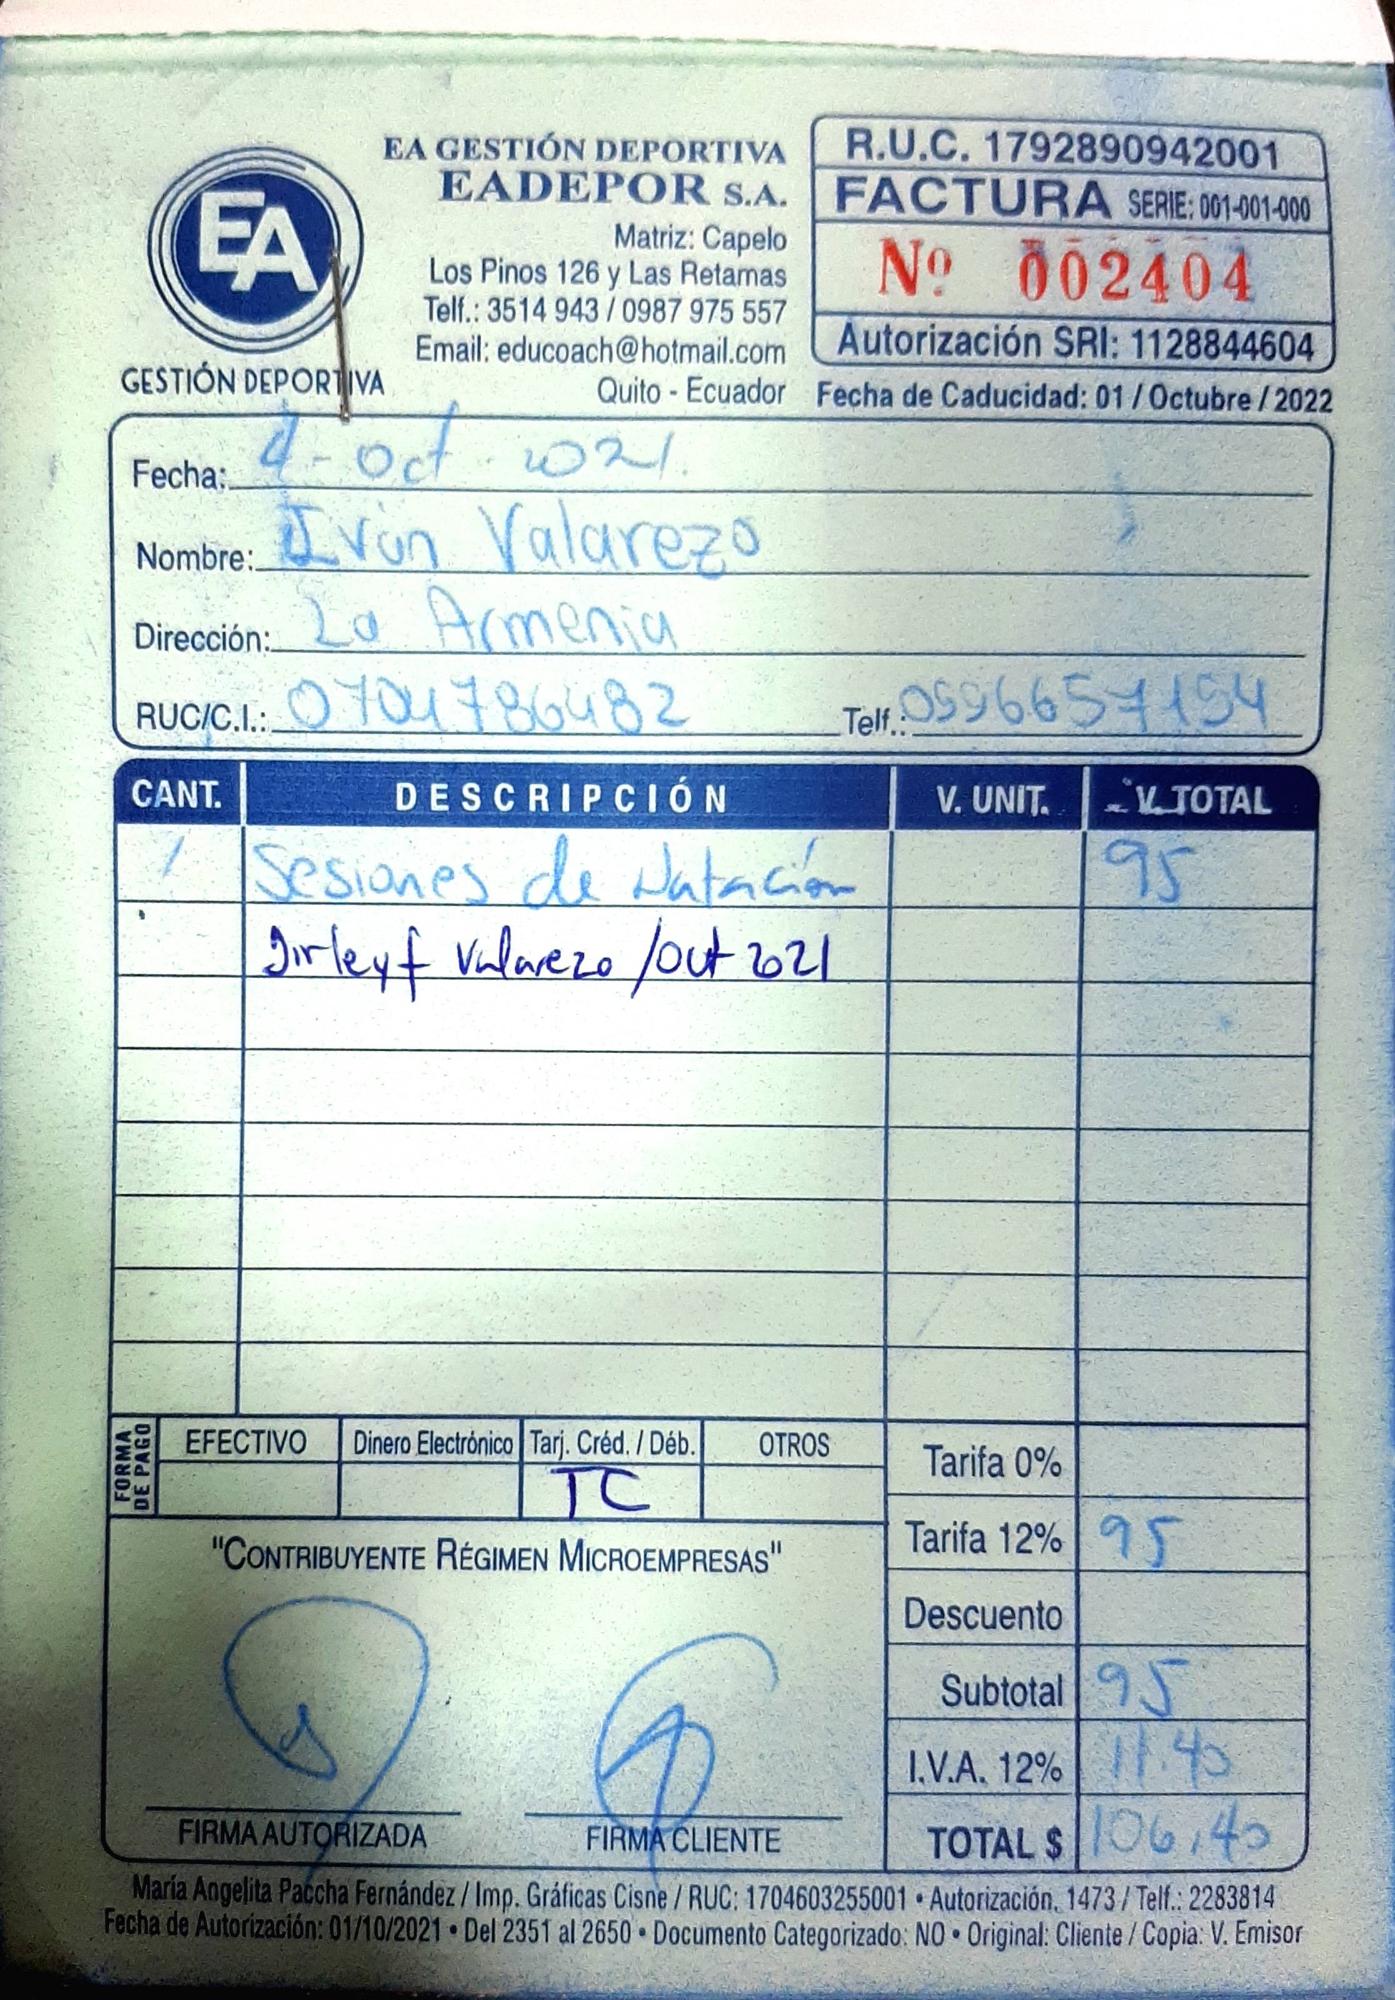 EA
GESTIÓN DEPORTIVA
EA GESTIÓN DEPORTIVA
EADEPOR S.A.
Matriz: Capelo
Los Pinos 126 y Las Retamas
Telf.: 3514 943 / 0987 975 557
Email: educoach@hotmail.com
Quito - Ecuador
R.U.C. 1792890942001
FACTURA SERIE: 001-001-000
Nº 002404
Autorización SRI: 1128844604
Fecha de Caducidad: 01 / Octubre / 2022
Fecha: 4 - Oct - 2021.
Nombre: Iván Valarezo
Dirección: La Armenia
RUC/C.I.: 0704786482 Telf.: 0996657194
CANT. DESCRIPCIÓN V. UNIT. V. TOTAL
1 Sesiones de Natación 95
Valarezo / Oct 2021
FORMA DE PAGO
EFECTIVO Dinero Electrónico Tarj. Créd. / Déb. OTROS
TC
Tarifa 0%
Tarifa 12% 95
Descuento
Subtotal 95
I.V.A. 12% 11.40
TOTAL $ 106,40
"CONTRIBUYENTE RÉGIMEN MICROEMPRESAS"
FIRMA AUTORIZADA FIRMA CLIENTE
María Angelita Paccha Fernández / Imp. Gráficas Cisne / RUC: 1704603255001 • Autorización. 1473 / Telf.: 2283814
Fecha de Autorización: 01/10/2021 • Del 2351 al 2650 • Documento Categorizado: NO • Original: Cliente / Copia: V. Emisor